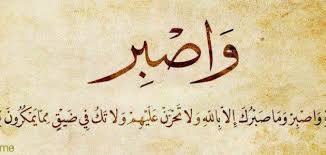 وَاصْبِر
وَاصْبِرْ وَمَا صَبْرُكَ إِلاَّ بِاللهِ وَلاَ تَحْزَنْ عَلَيْهِمْ وَلاَ تَكُ فِي ضَيْقٍ مِمَّا يَمْكُرُونَ
me